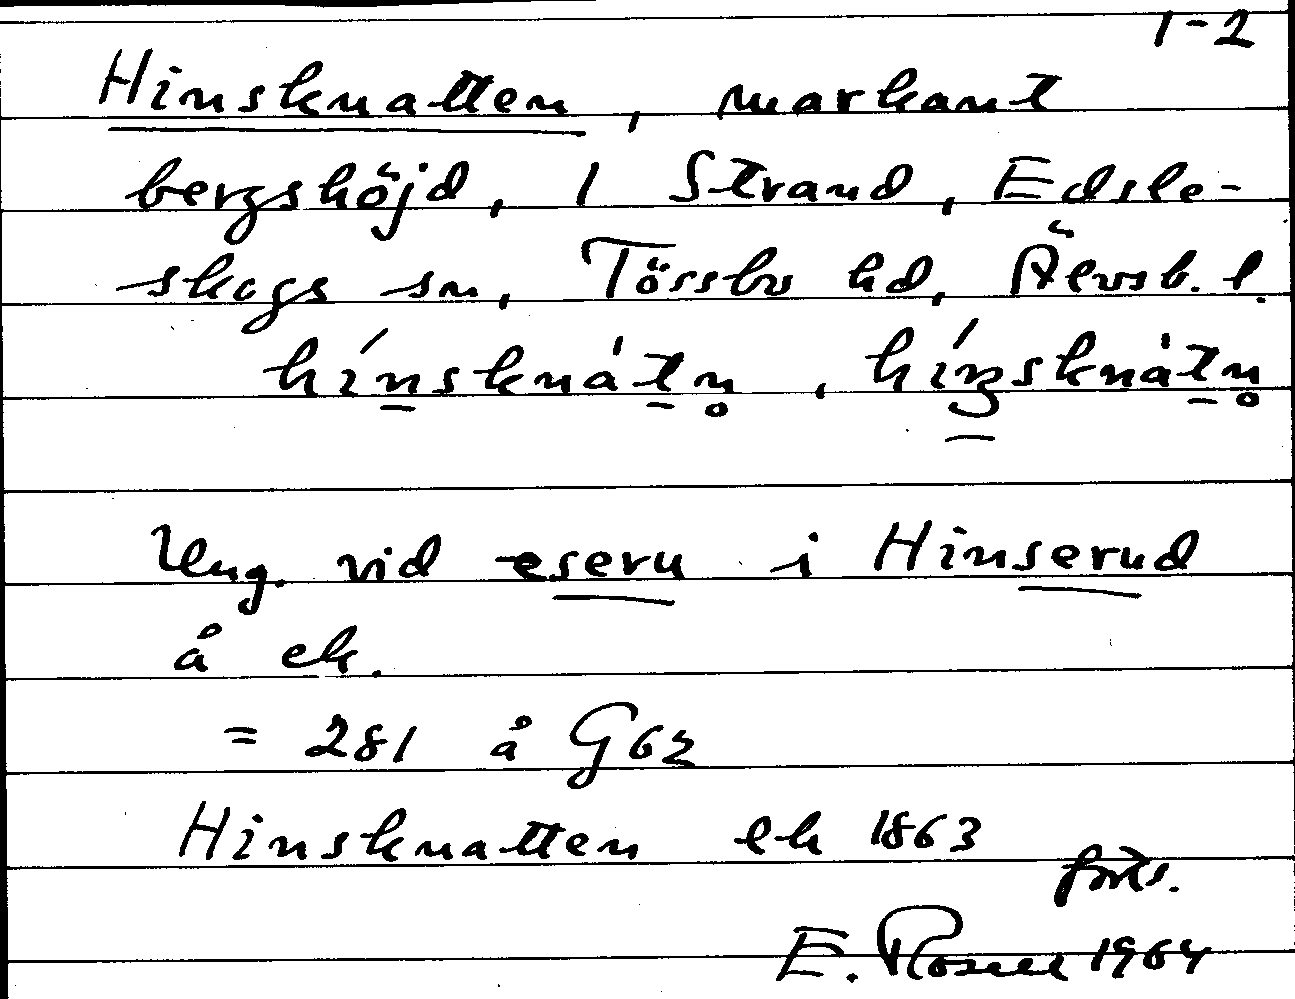 1-2
Hinsknatten, markant
bergshöjd, 1 Strand, Edsle-
skogs sn, Tössbo hd, Älvsb. l.
hínsknàtn̥, híŋsknàtn̥
Ung. vid eseru i Hinserud
å ek.
= 281 å G62
Hinsknatten ek 1863
forts.
E. Rosell 1964